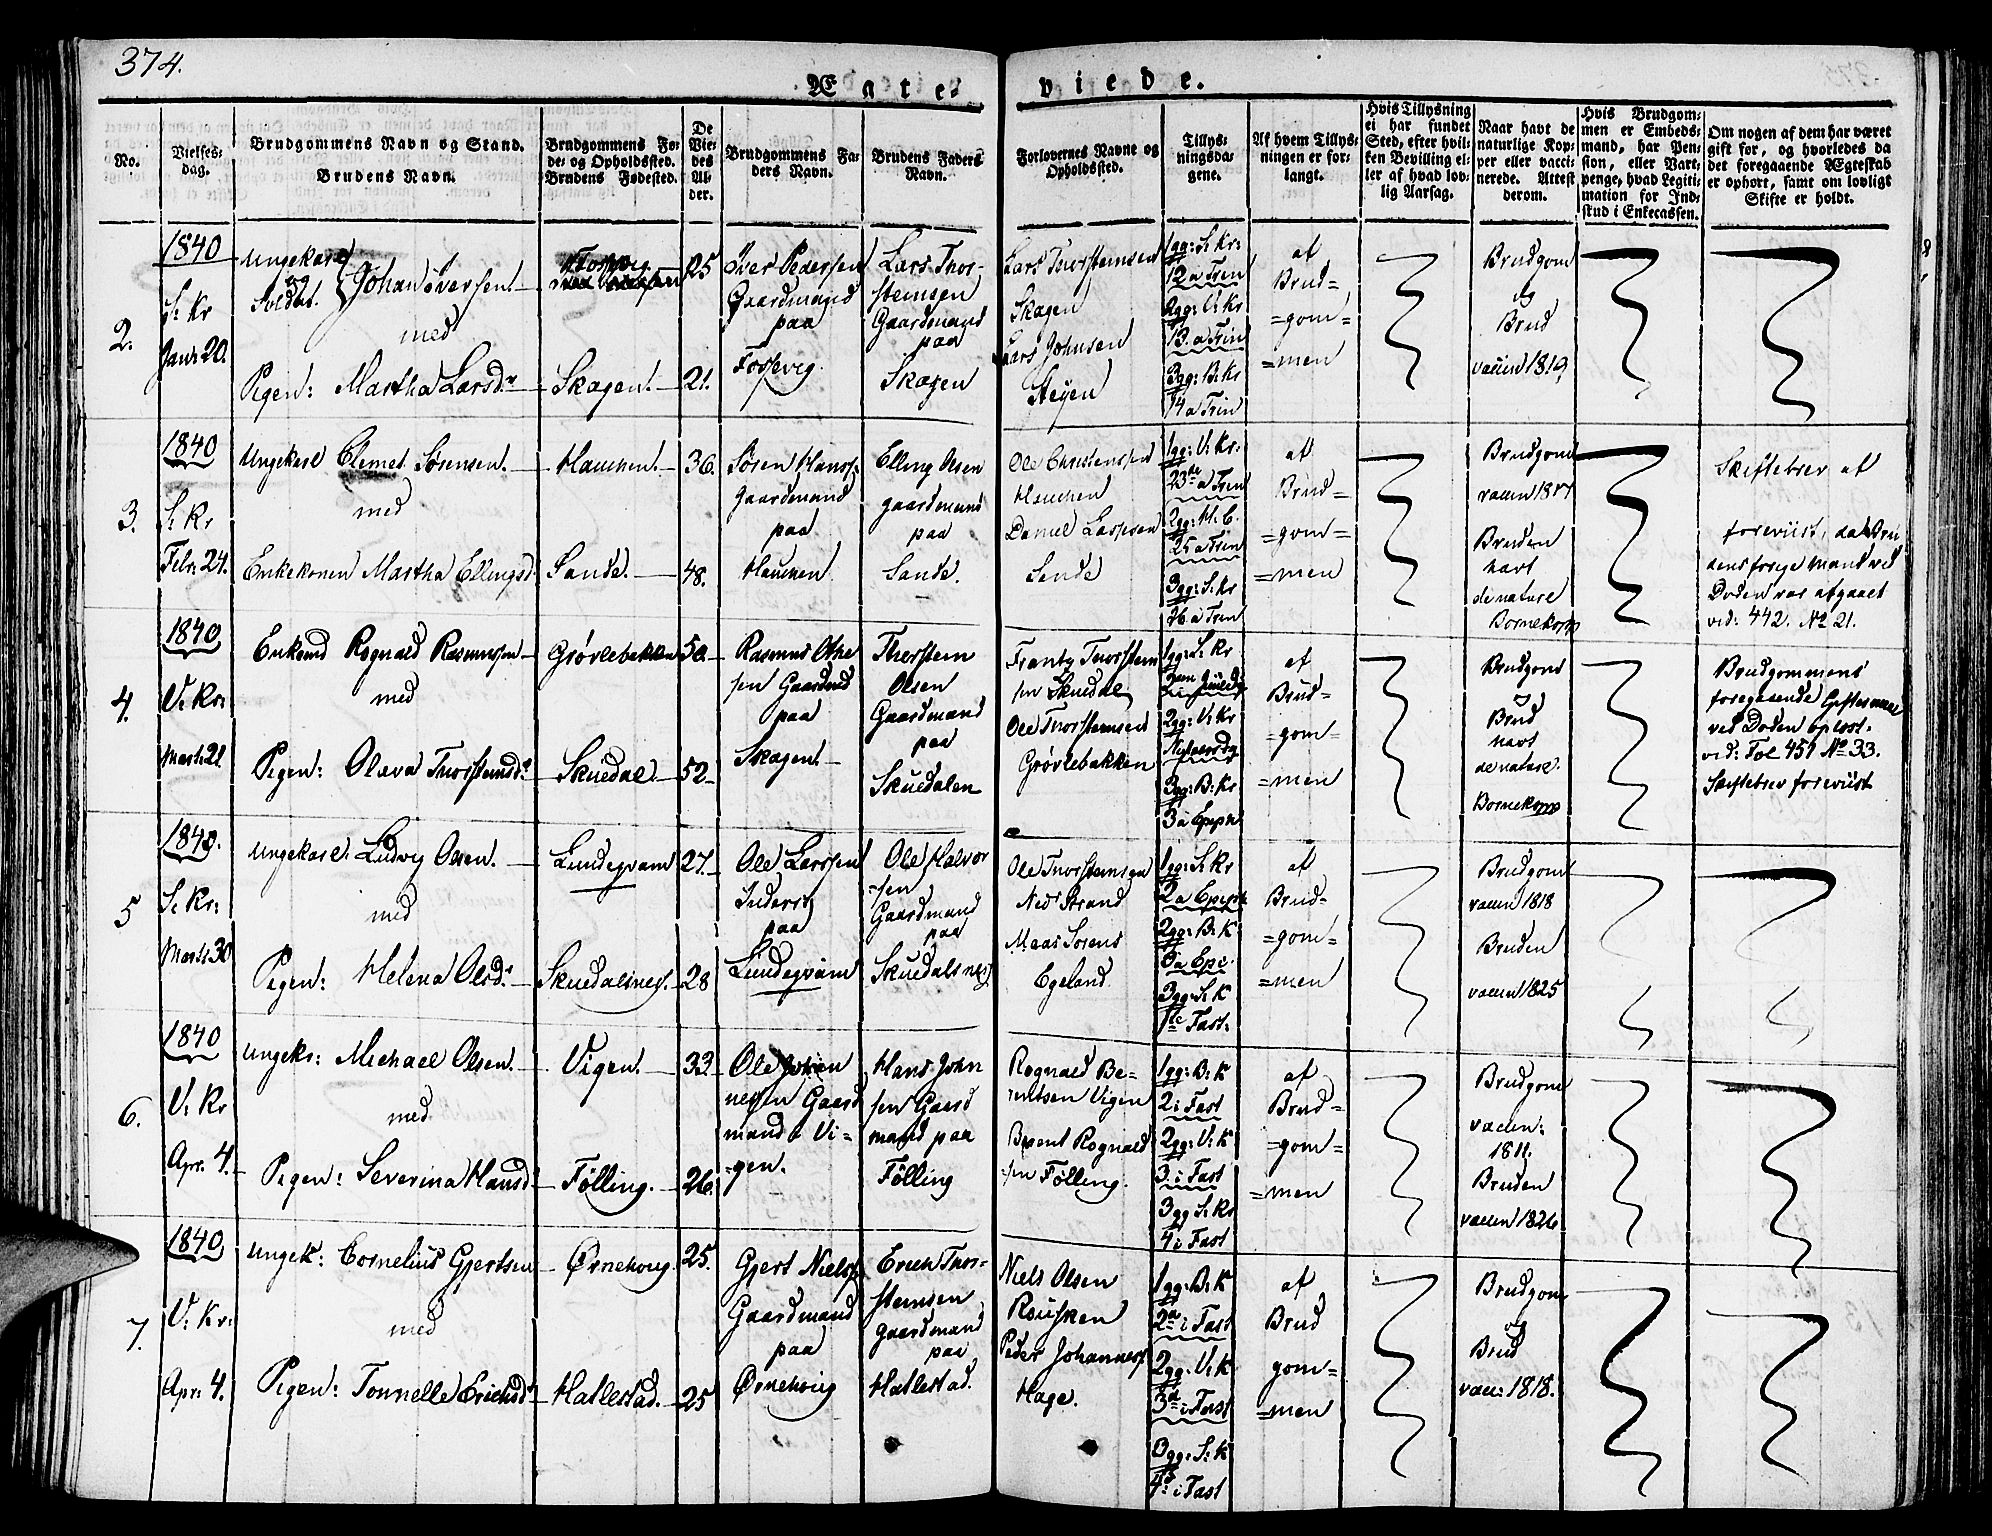 374.
Ægte-
viede.
No.
Vielses-
dag.
Brudgommens Navn og Stand.
Brudens Navn.
Brudgommens Fø-
de- og Opholdssted.
Brudens Fødested.
De
Vie-
des
Al-
der.
Brudgommens Fa-
ders Navn.
Brudens Faders
Navn.
Forlovernes Navne og
Opholdssted.
Tillys-
ningsda-
gene.
Af hvem Tillys-
ningen er for-
langt.
Hvis Tillysning
ei har fundet
Sted, efter hvil-
ken Bevilling el-
ler af hvad lov-
lig Aarsag.
Naar havt de
naturlige Kop-
per eller vacci-
nerede. Attest
derom.
Hvis Brudgom-
men er Embeds-
mand, har Pen-
sion, eller Vart-
penge, hvad Legiti-
mation for Ind-
skud i Enkecassen.
Om nogen af dem har været
gift før, og hvorledes da
det foregaaende Ægteskab
er ophørt, samt om lovligt
Skifte er holdt.
2.
1840
S: Kr
Janr 20.
Ungekarl
og
Soldat.
Johan Iversen
med
Pigen: Martha Larsd:
Skagen.
25
21.
Iver Pedersen
Gaardmand
paa
Fossevig
Lars Thor-
stensen
Gaardmand
paa
Skagen
Lars Thorstensen
Skagen
Lars Johnsen
Høyen
1gg: S: Kr:
12 a Trin
2gg: V: Kr
13. a Trin
3gg: B: Kr
14 a Trin
af
Brud=
=gom=
=men
Brudgom
og
Brud
vaccin 1819
3.
1840
S: Kr
Febr. 24.
Ungekarl Clemet Sørensen.
med
Enkekonen Martha Ellingsd.
Haucken.
Sande.
36.
48.
Søren Hanss.
Gaardmand
paa
Haucken
Elling Olsen
gaardmand
paa
Sande.
Ole Christensen
Haucken
Daniel Larssen
Sende
1gg: V: Kr.
23de a Trin
2gg: H. C.
25 a Trin
3gg: S: Kr
26. a Trin
af
Brud=
=gom=
=men
Brudgom
vaccin 1817
Bruden
havt
de naturl
Bornekopp
Skiftebrev af
foreviist, da Bru
dens forige Mand ved
Døden var afgaaet
vid: 442. No 21.
4.
1840
V: Kr:
Marts 21
Enkemd Rognald Rasmussen
med
Pigen: Olava Thorstensd:
Grøvlebakken
Skuedal.
50
52.
Rasmus Othe
sen Gaardmd
paa
Skagen
Thorsten
Olsen
Gaardmand
paa
Skuedalen
Frantz Thorsten
sen Skuedal
Ole Thorstensen
Grøvlebakken
1gg: S: Kr
2den Juledg
2gg: V: Kr
Nytaarsdg
3gg: B: Kr
3 a Epiph
af
Brud=
=gom=
=men
Brudgom
og
Brud
havt
de naturl.
Bornekopp
Brudgommens
foregaaende Giftermaal
ved Døden opløst.
vid: Fol 451 No 33.
Skiftebrev foreviist
5
1840.
S: Kr:
Marts 30
Ungekarl. Ludvig Olsen.
med
Pigen: Helena Olsd:
Lundegvam
Skuedalsnes.
27.
28
Ole Larssen
Inderst
paa
Lundegvam
Ole Halvor
-sen
Gaardmand
paa
Skuedalsnes
Ole Thorstensen
Ned Strand
Maas Sorens
Egeland
1gg: S: Kr
2 a Epiph
2gg: B: K
5 a Epi.
3gg: S: K
1ste Fast.
af
Brud=
=gom=
=men
Brudgom
vaccin 1818
Bruden
vaccin 1825
6.
1840
V: Kr
Apr. 4.
Ungek: Michael Olsen.
med
Pigen: Severina Hansd.
Vigen.
Følling.
33.
26.
Ole Johan
nessen Gaard
mand i Vi=
=gen.
Hans John
sen Gaard
mand paa
Følling
Rognald Be-
rentsen Vigen
Berent Rognald
sen Følling.
1gg: B: K
2 i Fast
2gg: V: K
3. i Fast
3gg S: Kr
4 i Fast
af
Brud=
=gom=
=men
Brudgom
vaccin:
1811.
Bruden
vaccin 1826
7.
1840
V: Kr:
Apr: 4.
Ungek: Cornelius Gjertsen
med
Pigen: Tonnelle Erichsd:
Ørnehoug.
Hatlestad.
25.
25
Gjert Nielss.
Gaardmand
paa
Ørnehoug
Erich Thor-
stensen
gaardmand
paa
Hatlestad.
Niels Olsen
Peder Johanness.
Hage.
1gg: B: K
2 i Fast
2gg: V: K
3d i Fast
3gg: S: K
4 i Fast
af
Brud
gom=
=men
Brudgom
og
Brud
vacc: 1818.